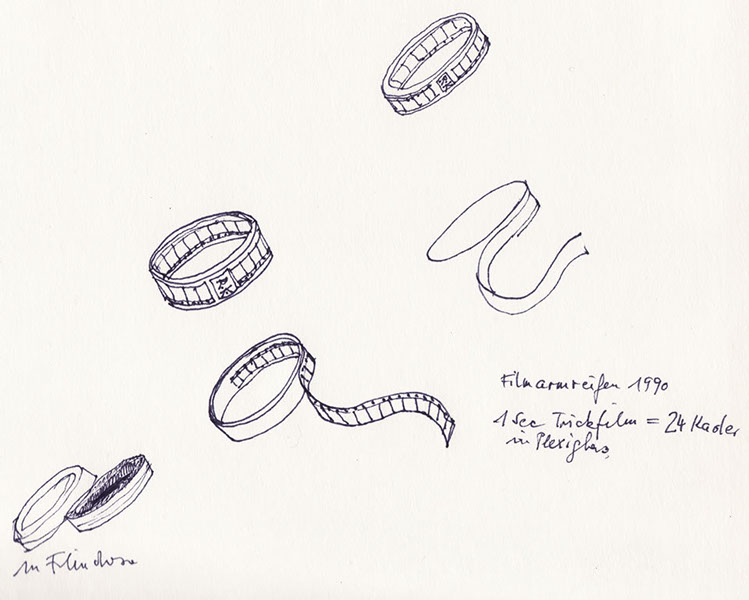 Filmarmreifen 1990
1 Sec Trickfilm = 24 Kader
in Plexiglas,
in Filmdose